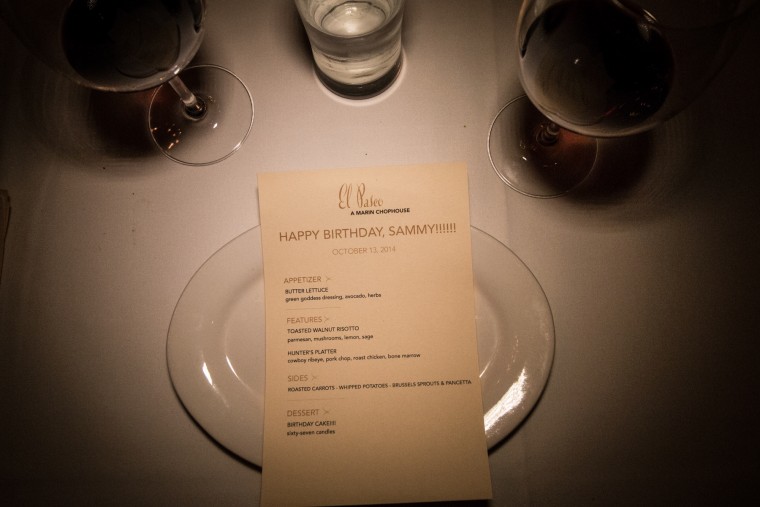 El Paseo
A MARIN CHOPHOUSE
HAPPY BIRTHDAY, SAMMY!!!!!!
OCTOBER 13, 2014
APPETIZER >
BUTTER LETTUCE
green goddess dressing, avocado, herbs
FEATURES >
TOASTED WALNUT RISOTTO
parmesan, mushrooms, lemon, sage
HUNTER'S PLATTER
cowboy ribeye, pork chop, roast chicken, bone marrow
SIDES >
ROASTED CARROTS - WHIPPED POTATOES - BRUSSELS SPROUTS & PANCETTA
DESSERT >
BIRTHDAY CAKE!!!!
sixty-seven candles